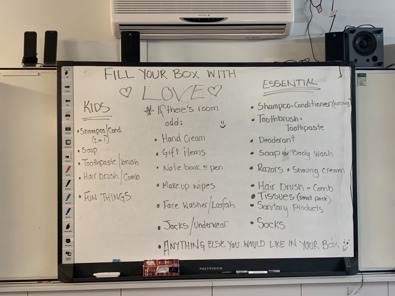 FILL YOUR BOX WITH
LOVE
KIDS
Shampoo/Cond.
Soap
Toothpaste/brush
Hair brush/Comb
FUN THINGS
* If there's room
add:
Hand Cream
Gift items
Note book + pen
Make up wipes
Face Washer/Loofah
Jocks/Underwear
ANYTHING ELSE YOU WOULD LIKE IN YOUR BOX
ESSENTIAL
Shampoo + Conditioner
Toothbrush +
Toothpaste
Deodorant
Soap or Body Wash
Razors + Shaving cream
Hair Brush + Comb
Tissues (small pack)
Sanitary Products
Socks